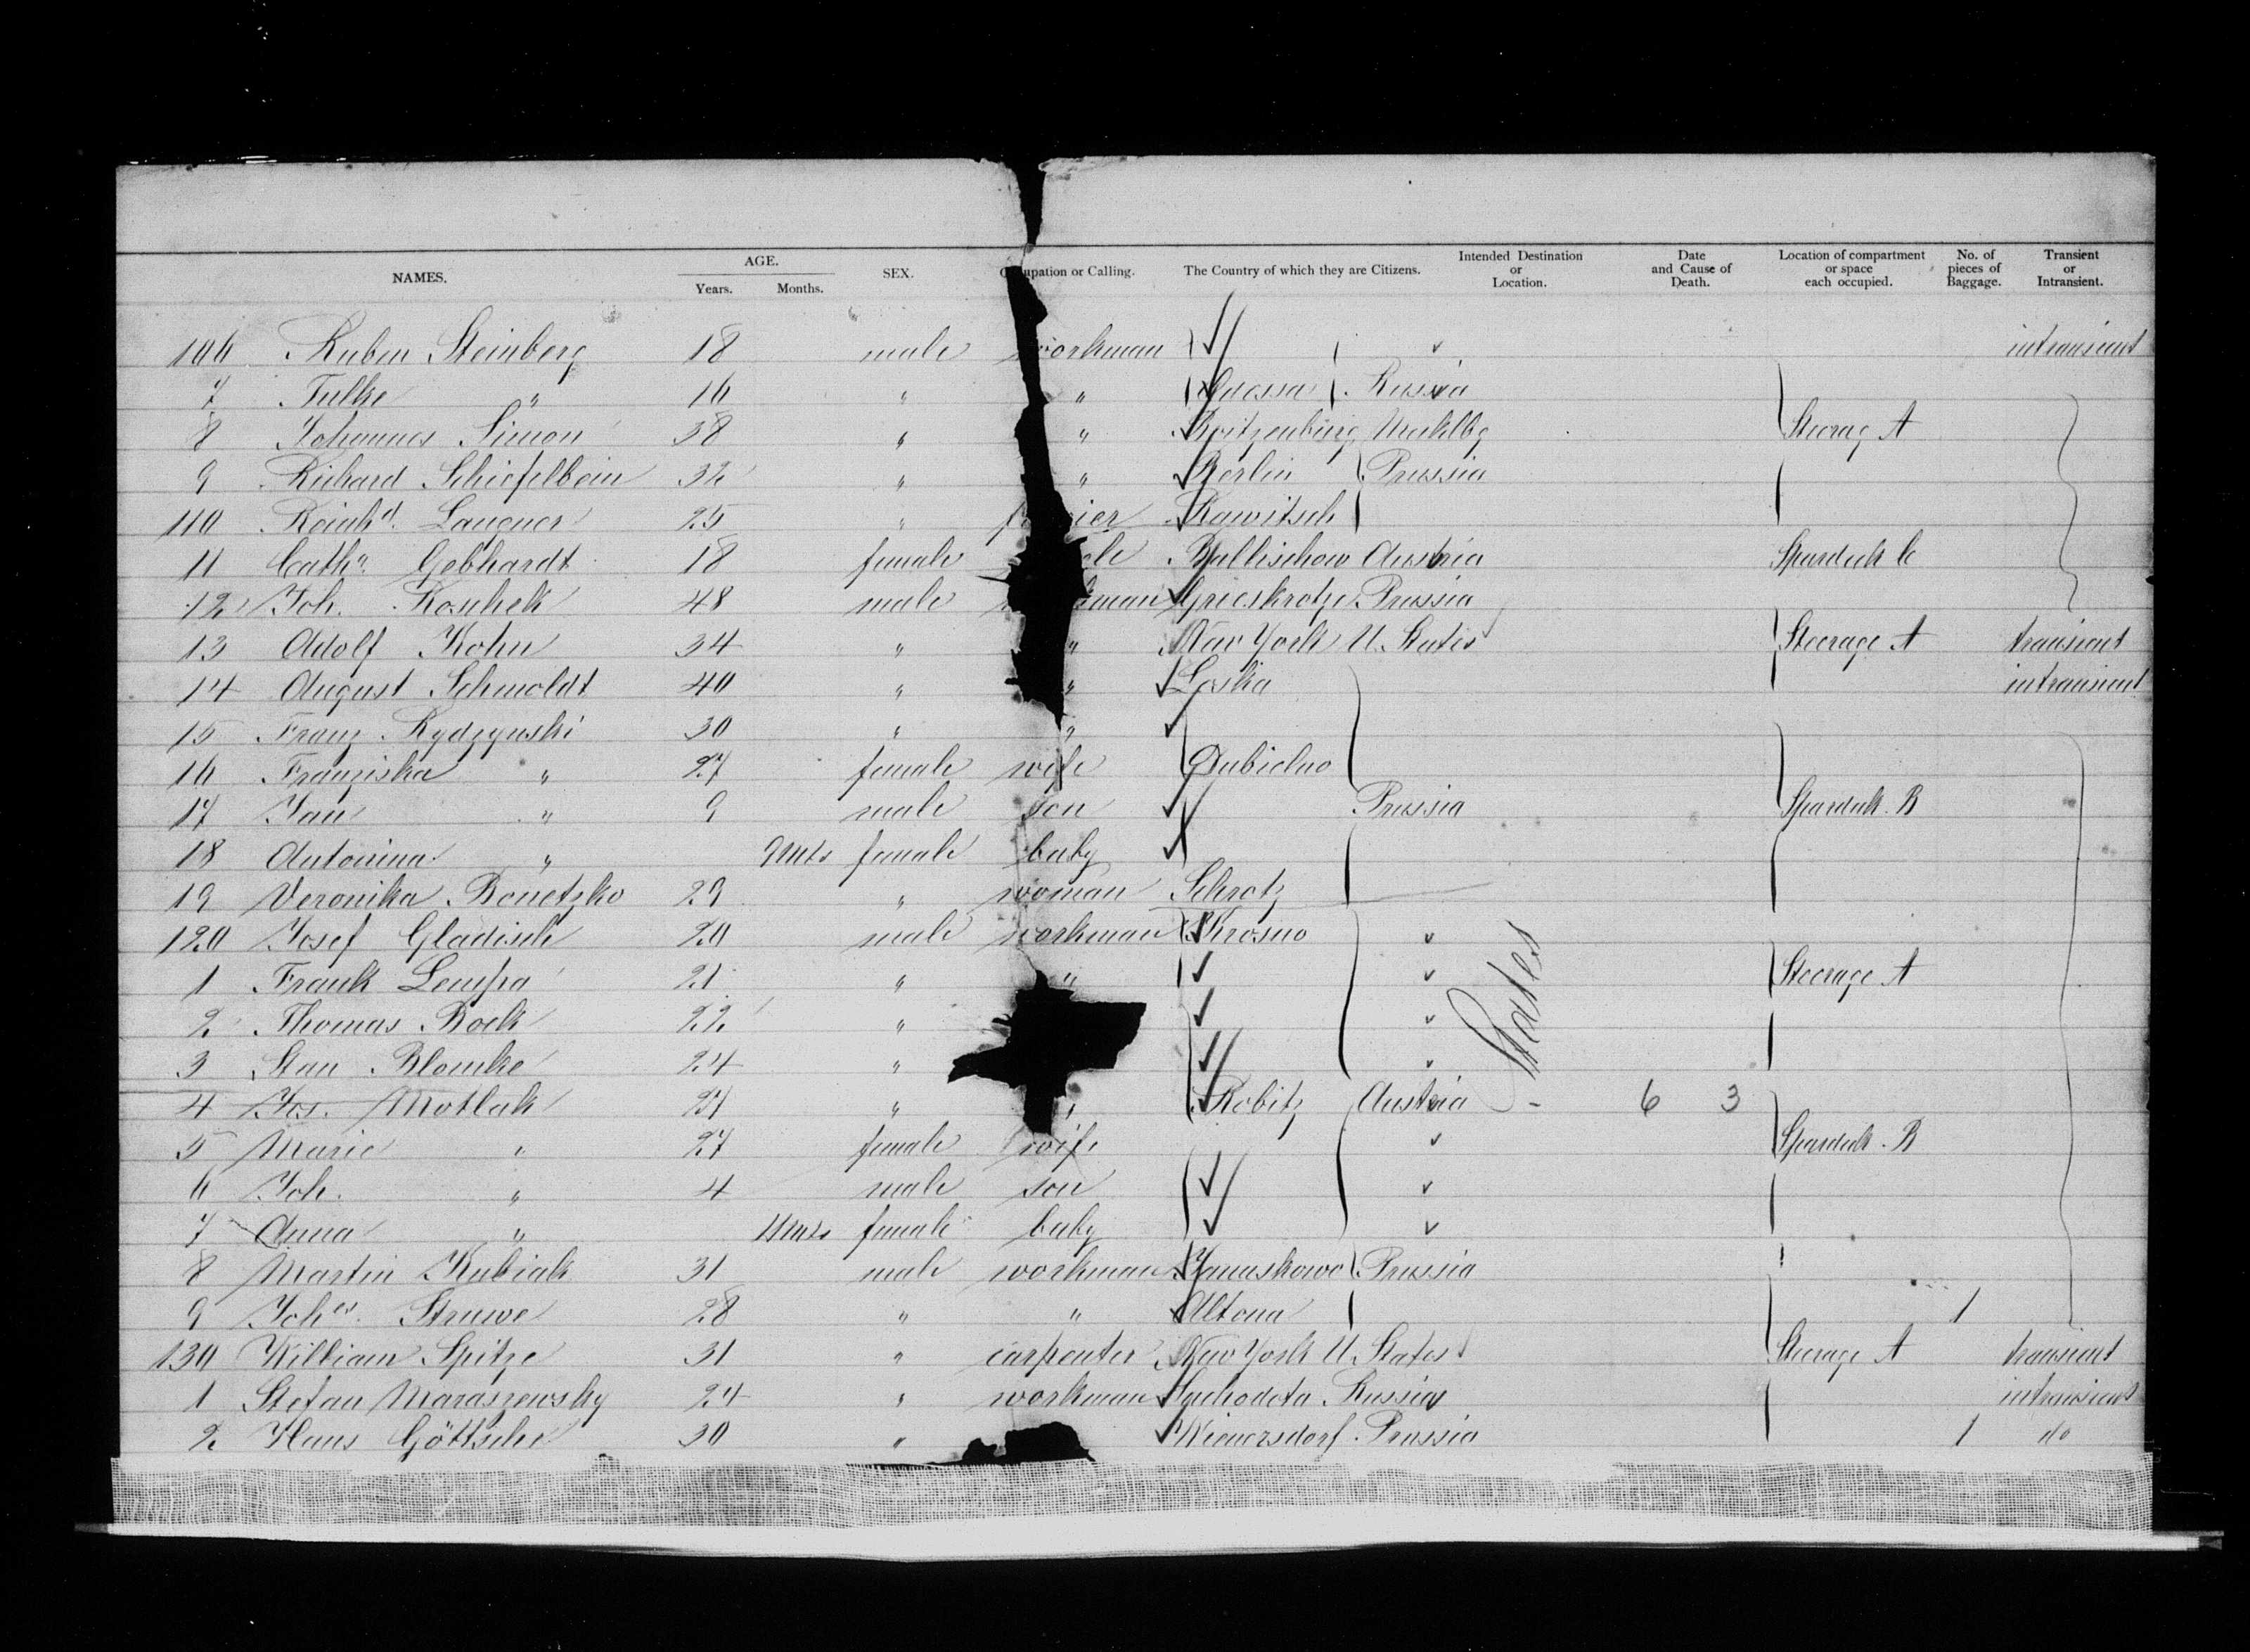 NAMES. AGE. Years. Months. SEX. upation or Calling. The Country of which they are Citizens. Intended Destination or Location. Date and Cause of Death. Location of compartment or space each occupied. No. of pieces of Baggage. Transient or Intransient.
106 Ruben Steinberg 18 male workman intransient
7 Tulke " 16 " " Odessa Russia
8 Johannes Simon 38 " " Meklbg Steerag A
9 Richard Schiefelbein 32 " " Berlin Prussia
110 Reinhd. Langner 25 " Rawitsch
11 Cathr. Gebhardt 18 female Austria Spardeck C
12 Joh. Koschek 48 male Prussia
13 Adolf Kohn 34 " " New York U. States Steerage A transient
14 August Schmoldt 40 " " Loska intransient
15 Franz Rydzynski 30 " "
16 Franziska " 27 female wife Dubielno
17 Jan " 9 male son Prussia Spardeck. B
18 Antonina " 9 Mts female baby
19 Veronika Bonetzko 29 " woman Schrotz
120 Josef Gladisch 20 male workman Krosno
1 Frank Lempa 21 " " Steerage A
2 Thomas Bock 22 "
3 Stan Blomke 24 " States
4 Jos. Motlak 27 " " Robitz Austria - 6 3
5 Marie " 27 female wife Spardeck. B
6 Joh. " 4 male son
7 Anna " 11 Mts female baby
8 Martin Kubiak 31 male workman Januskowo Prussia
9 Johes. Struwe 28 " " Altona 1
130 William Spitze 31 " carpenter New York U. States Steerage A transient
1 Stefan Maraszewsky 24 " workman Russia intransient
2 Hans Göttsche 30 " Prussia 1 do